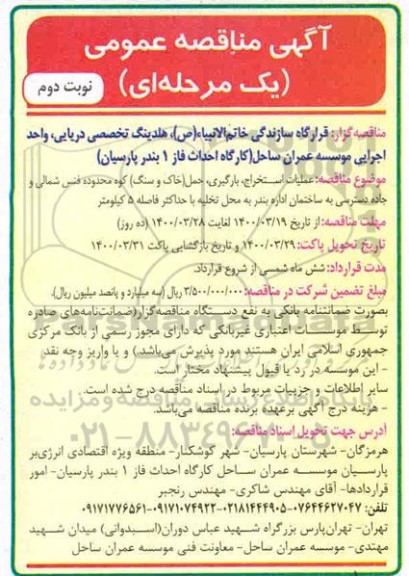 آگهی مناقصه عمومی
(یک مرحله‌ای)
نوبت دوم
مناقصه‌گزار: قرارگاه سازندگی خاتم‌الانبیاء(ص)، هلدینگ تخصصی دریایی، واحد
اجرایی موسسه عمران ساحل(کارگاه احداث فاز ۱ بندر پارسیان)
موضوع مناقصه: عملیات استخراج، بارگیری، حمل(خاک و سنگ) کوه محدوده فنس شمالی و
جاده دسترسی به ساختمان اداره بندر به محل تخلیه با حداکثر فاصله ۵ کیلومتر
مهلت مناقصه: از تاریخ ۱۴۰۰/۰۳/۱۹ لغایت ۱۴۰۰/۰۳/۲۸ (ده روز)
تاریخ تحویل پاکت: ۱۴۰۰/۰۳/۲۹ و تاریخ بازگشایی پاکت ۱۴۰۰/۰۳/۳۱
مدت قرارداد: شش ماه شمسی از شروع قرارداد.
مبلغ تضمین شرکت در مناقصه: ۳/۵۰۰/۰۰۰/۰۰۰ ریال (سه میلیارد و پانصد میلیون ریال).
بصورت ضمانتنامه بانکی به نفع دستگاه مناقصه گزار(ضمانت‌نامه‌های صادره
توسط موسسات اعتباری غیربانکی که دارای مجوز رسمی از بانک مرکزی
جمهوری اسلامی ایران هستند مورد پذیرش می‌باشد) و یا واریز وجه نقد
- این موسسه در رد یا قبول پیشنهاد مختار است.
سایر اطلاعات و جزییات مربوط در اسناد مناقصه درج شده است.
- هزینه درج آگهی برعهده برنده مناقصه می‌باشد.
پایگاه اطلاع رسانی مناقصه و مزایده
آدرس جهت تحویل اسناد مناقصه:
هرمزگان- شهرستان پارسیان- شهر کوشکنار- منطقه ویژه اقتصادی انرژی‌بر
پارسیان موسسه عمران ساحل کارگاه احداث فاز ۱ بندر پارسیان- امور
قراردادها- آقای مهندس شاکری- مهندس رنجبر
تلفن: ۰۷۶۴۴۶۲۷۰۴۷-۰۲۱۸۱۴۴۴۹۰۵-۰۹۱۷۱۰۷۴۹۲۲-۰۹۱۷۱۷۷۶۵۶۱
تهران- تهران‌پارس بزرگراه شهید عباس دوران(اسبدوانی) میدان شهید
مهتدی- موسسه عمران ساحل- معاونت فنی موسسه عمران ساحل